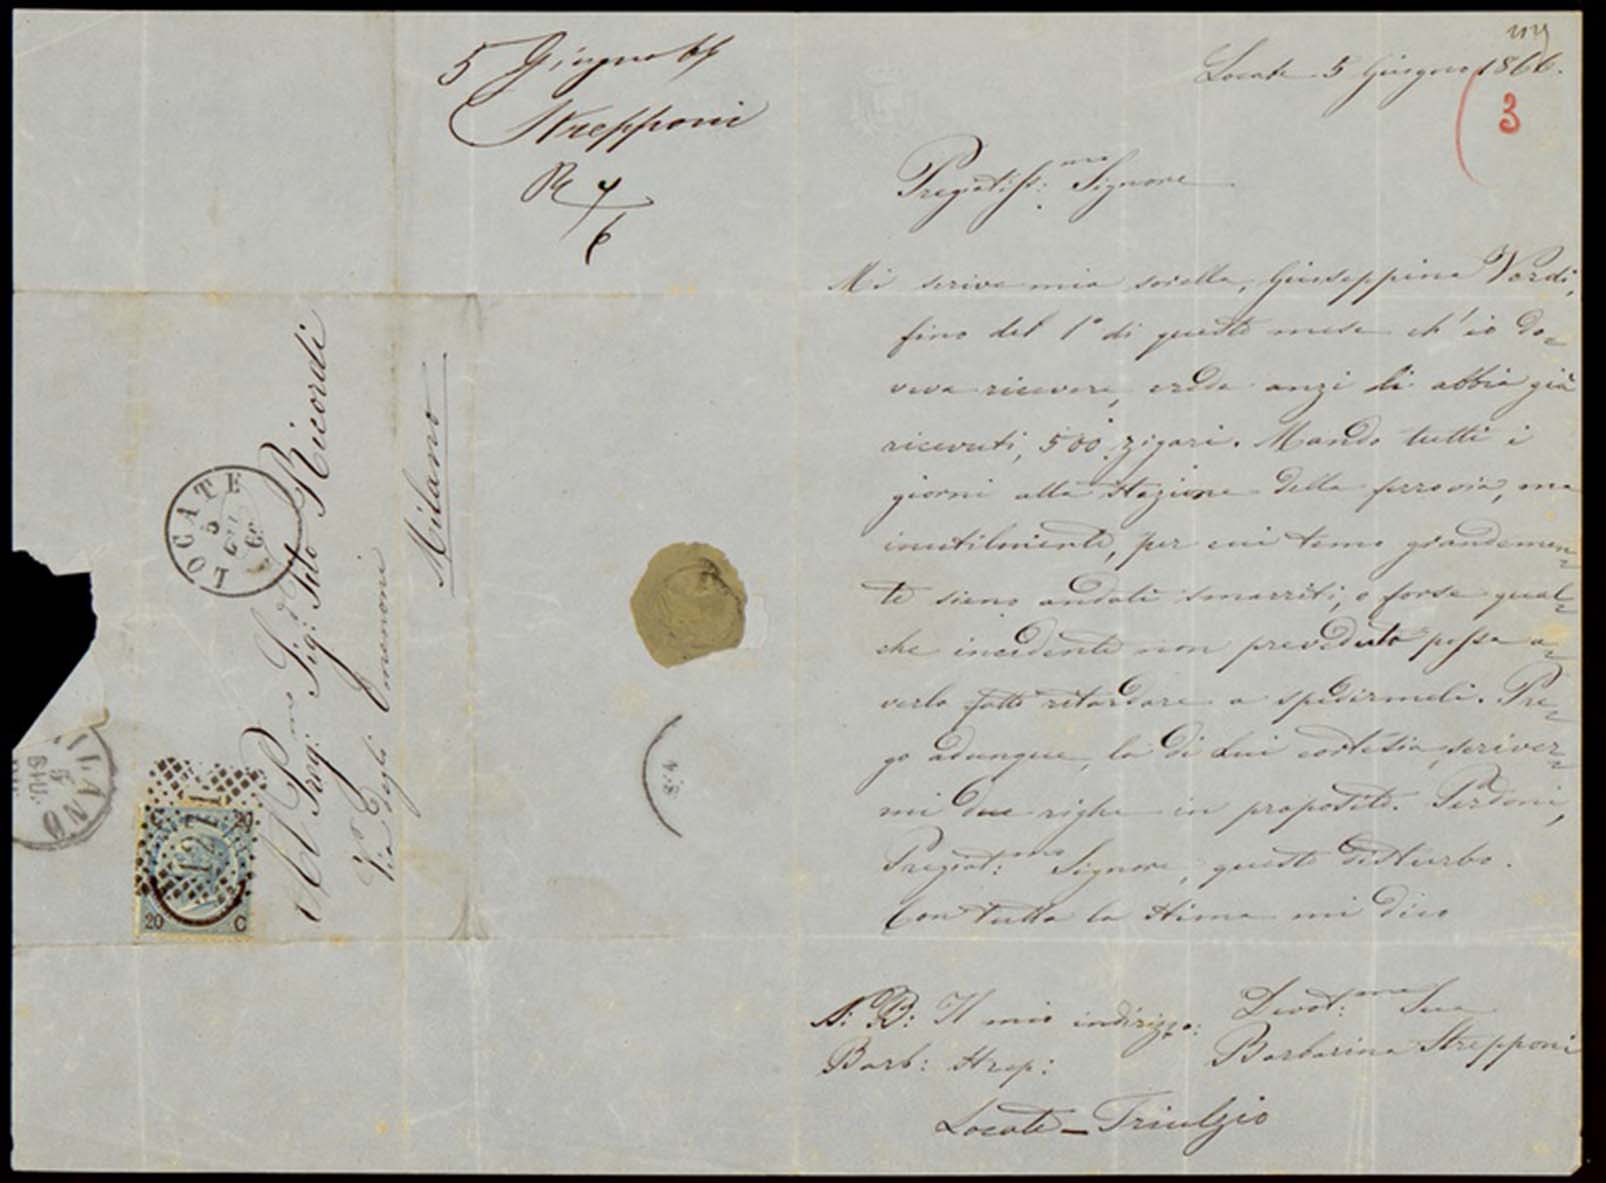 5 Giugno 66
Strepponi
R 7/6
LOCATE
5
GIU
66
Al Preg:mo Sig:r Tito Ricordi
Via degli Omenoni
Milano
MILANO
5
GIU.
20
20 C
Locate 5 Giugno 1866.
3
Pregiatiss:mo Signore
Mi scrive mia sorella, Giuseppina Verdi,
fino del 1° di questo mese ch'io do=
veva ricevere, crede anzi li abbia già
ricevuti, 500 zigari. Mando tutti i
giorni alla stazione della ferrovia, ma
inutilmente, per cui temo grandemen=
te sieno andati smarriti, o forse qual=
che incidente non preveduto possa a=
verlo fatto ritardare a spedirmeli. Pre=
go adunque, la di Lui cortesia, scriver=
mi due righe in proposito. Perdoni,
Pregiat:mo Signore, questo disturbo.
Con tutta la stima mi dico
Devot:ma Sua
Barbarina Strepponi
N: B: Il mio indirizzo:
Barb: Strep:
Locate - Triulzio